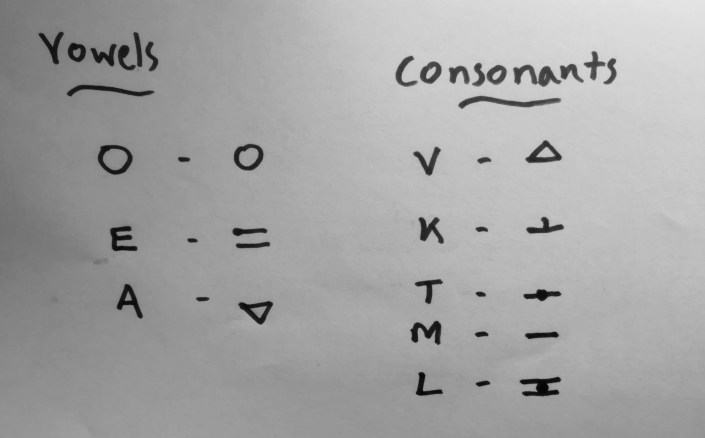 Vowels
Consonants
O - O
V - △
E - =
K - ⊥
A - ▽
T -
M - —
L -